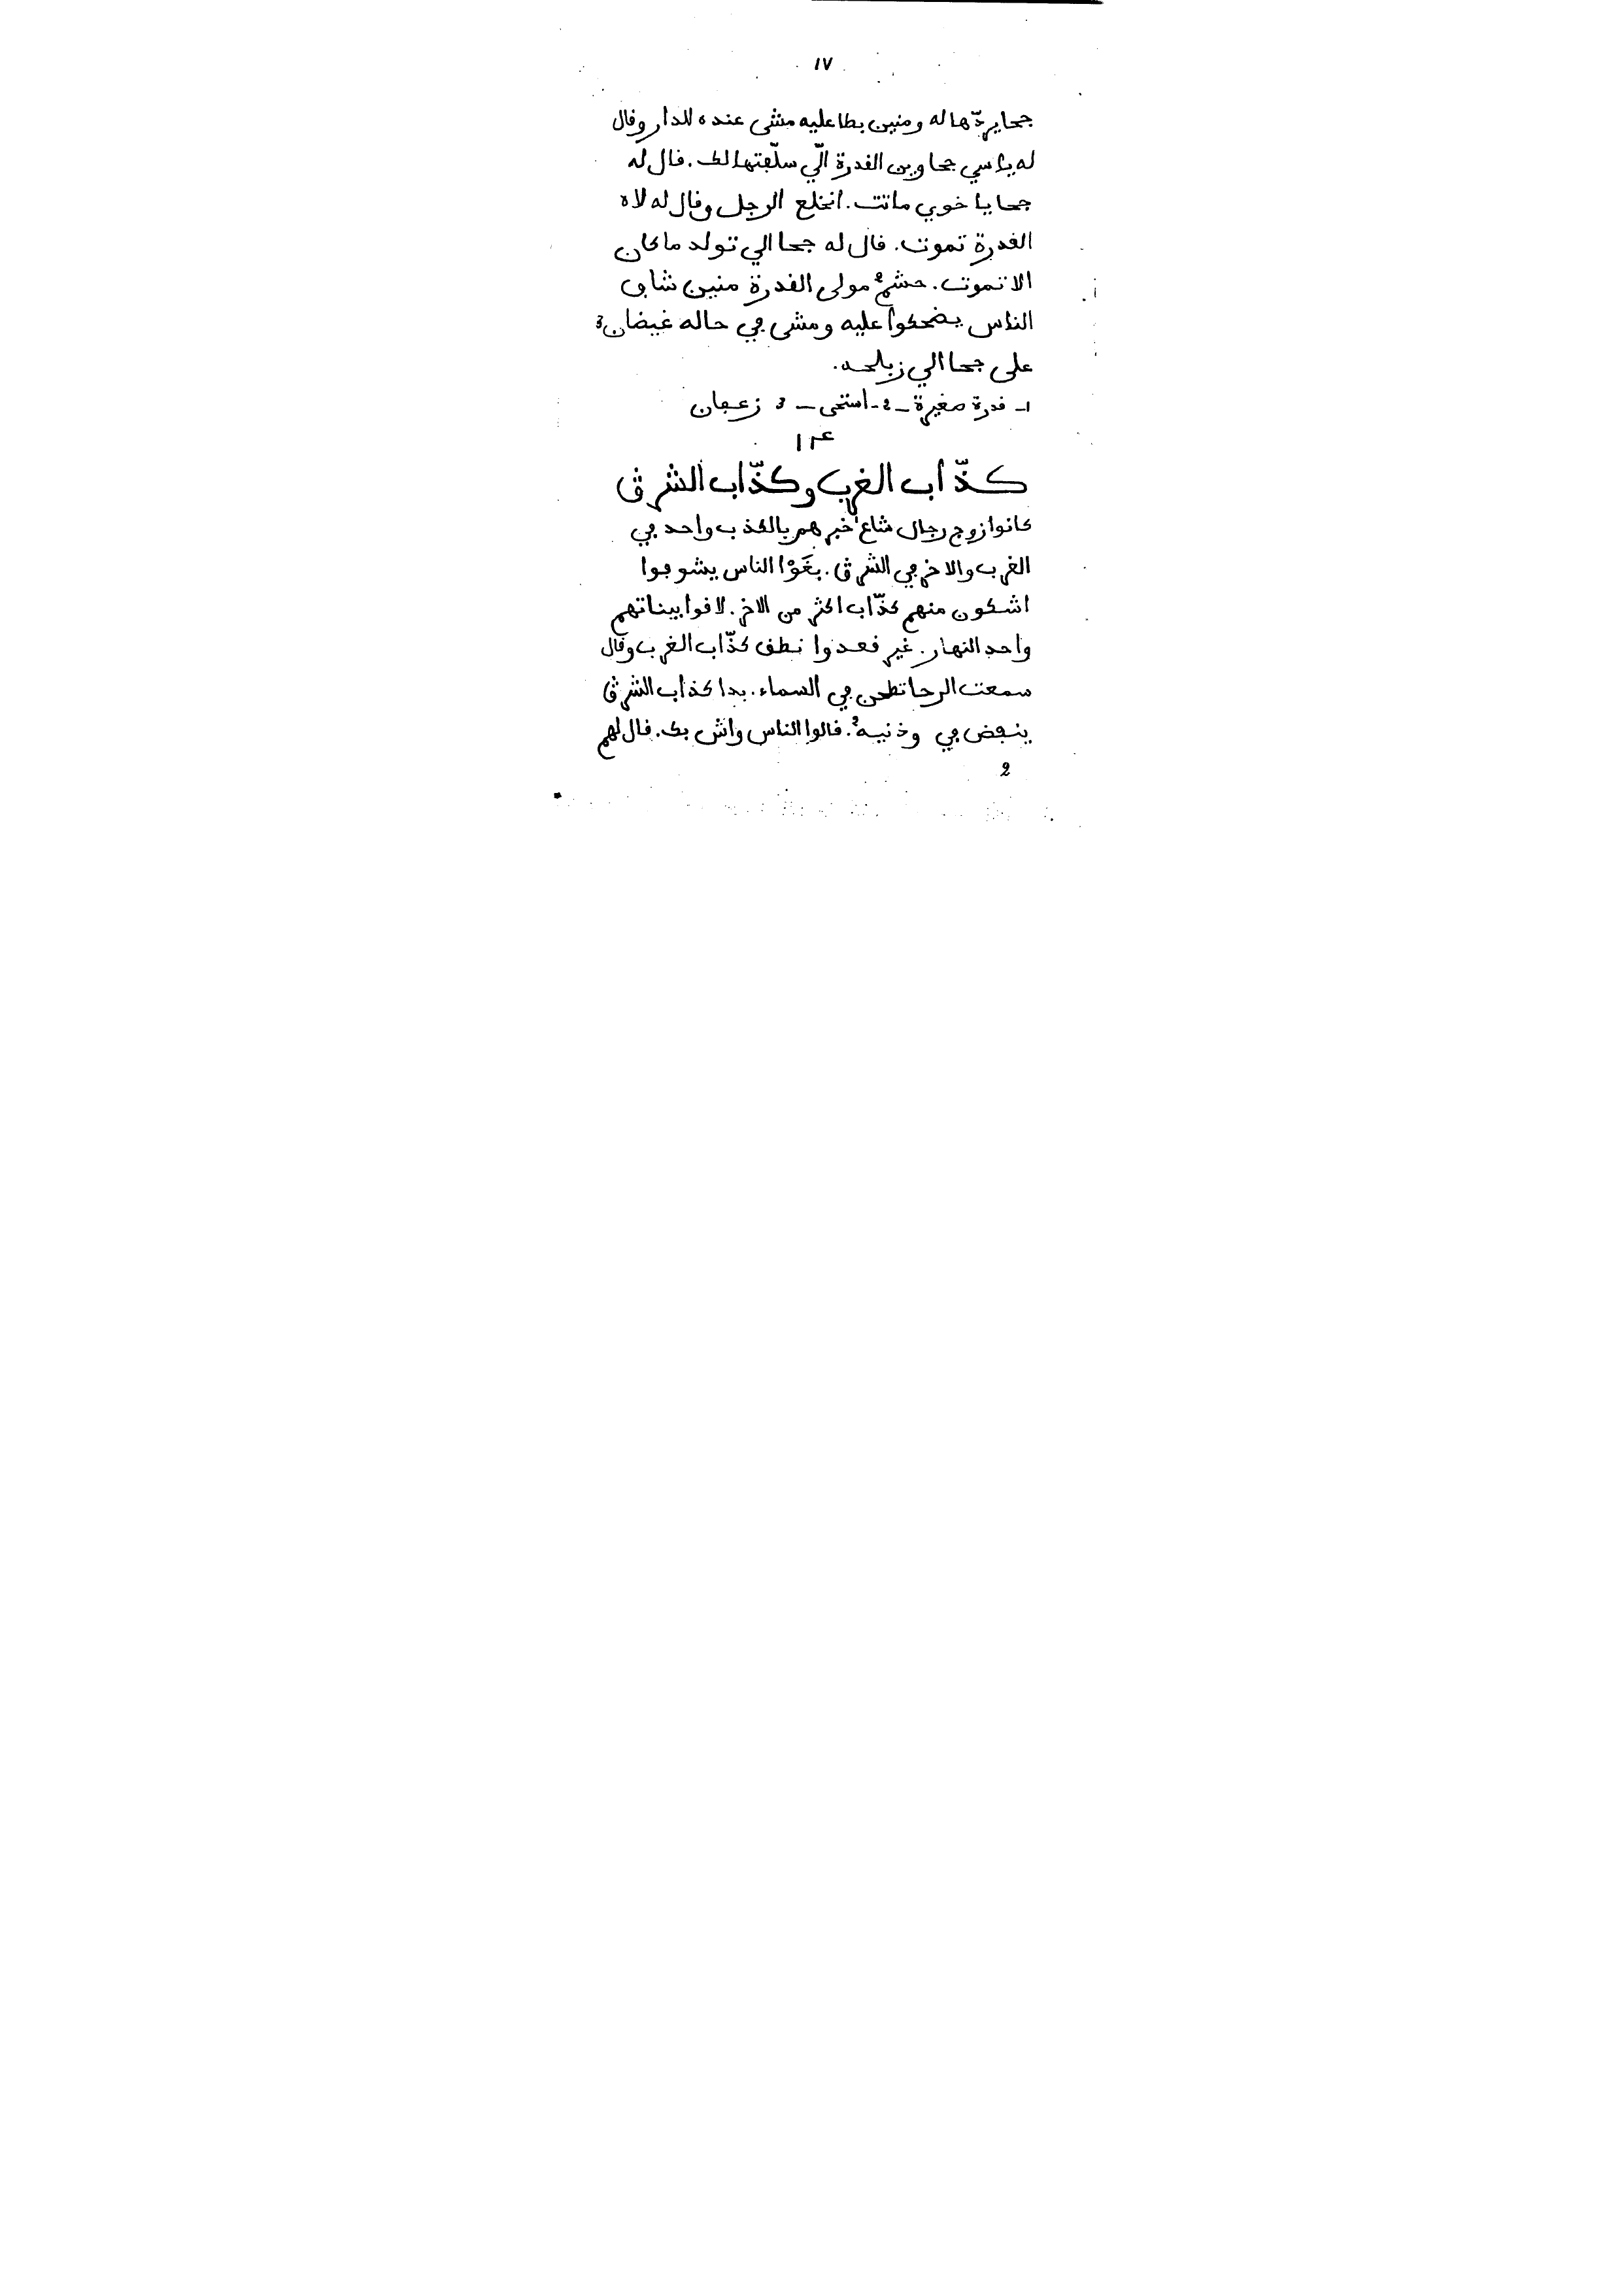 ١٧
جحا يردّها له ومنين بطا عليه مشى عنده للدار وقال
له يا سي جحا وين القدرة الّي سلّفتها لك. قال له
جحا يا خوي ماتت. انخلع الرجل وقال له لاه
القدرة تموت. قال له جحا الي تولد ما كان
الا تموت. حشم2 مولى القدرة منين شاف
الناس يضحكوا عليه ومشى في حاله غيضان3
على جحا الي زبلحه.
1- قدرة صغيرة - 2- استحى - 3 زعفان
١٤
كذّاب الغرب وكذّاب الشرق
كانوا زوج رجال شاع1 خبرهم بالكذب واحد في
الغرب والاخر في الشرق. بغَوْا الناس يشوفوا
اشكون منهم كذّاب اكثر من الاخر. لاقوا بيناتهم
واحد النهار. غير قعدوا نطق كذّاب الغرب وقال
سمعت الرحا تطحن في السماء. بدا كذاب الشرق
ينفض في وذنيه2. قالوا الناس واش بك. قال لهم
2